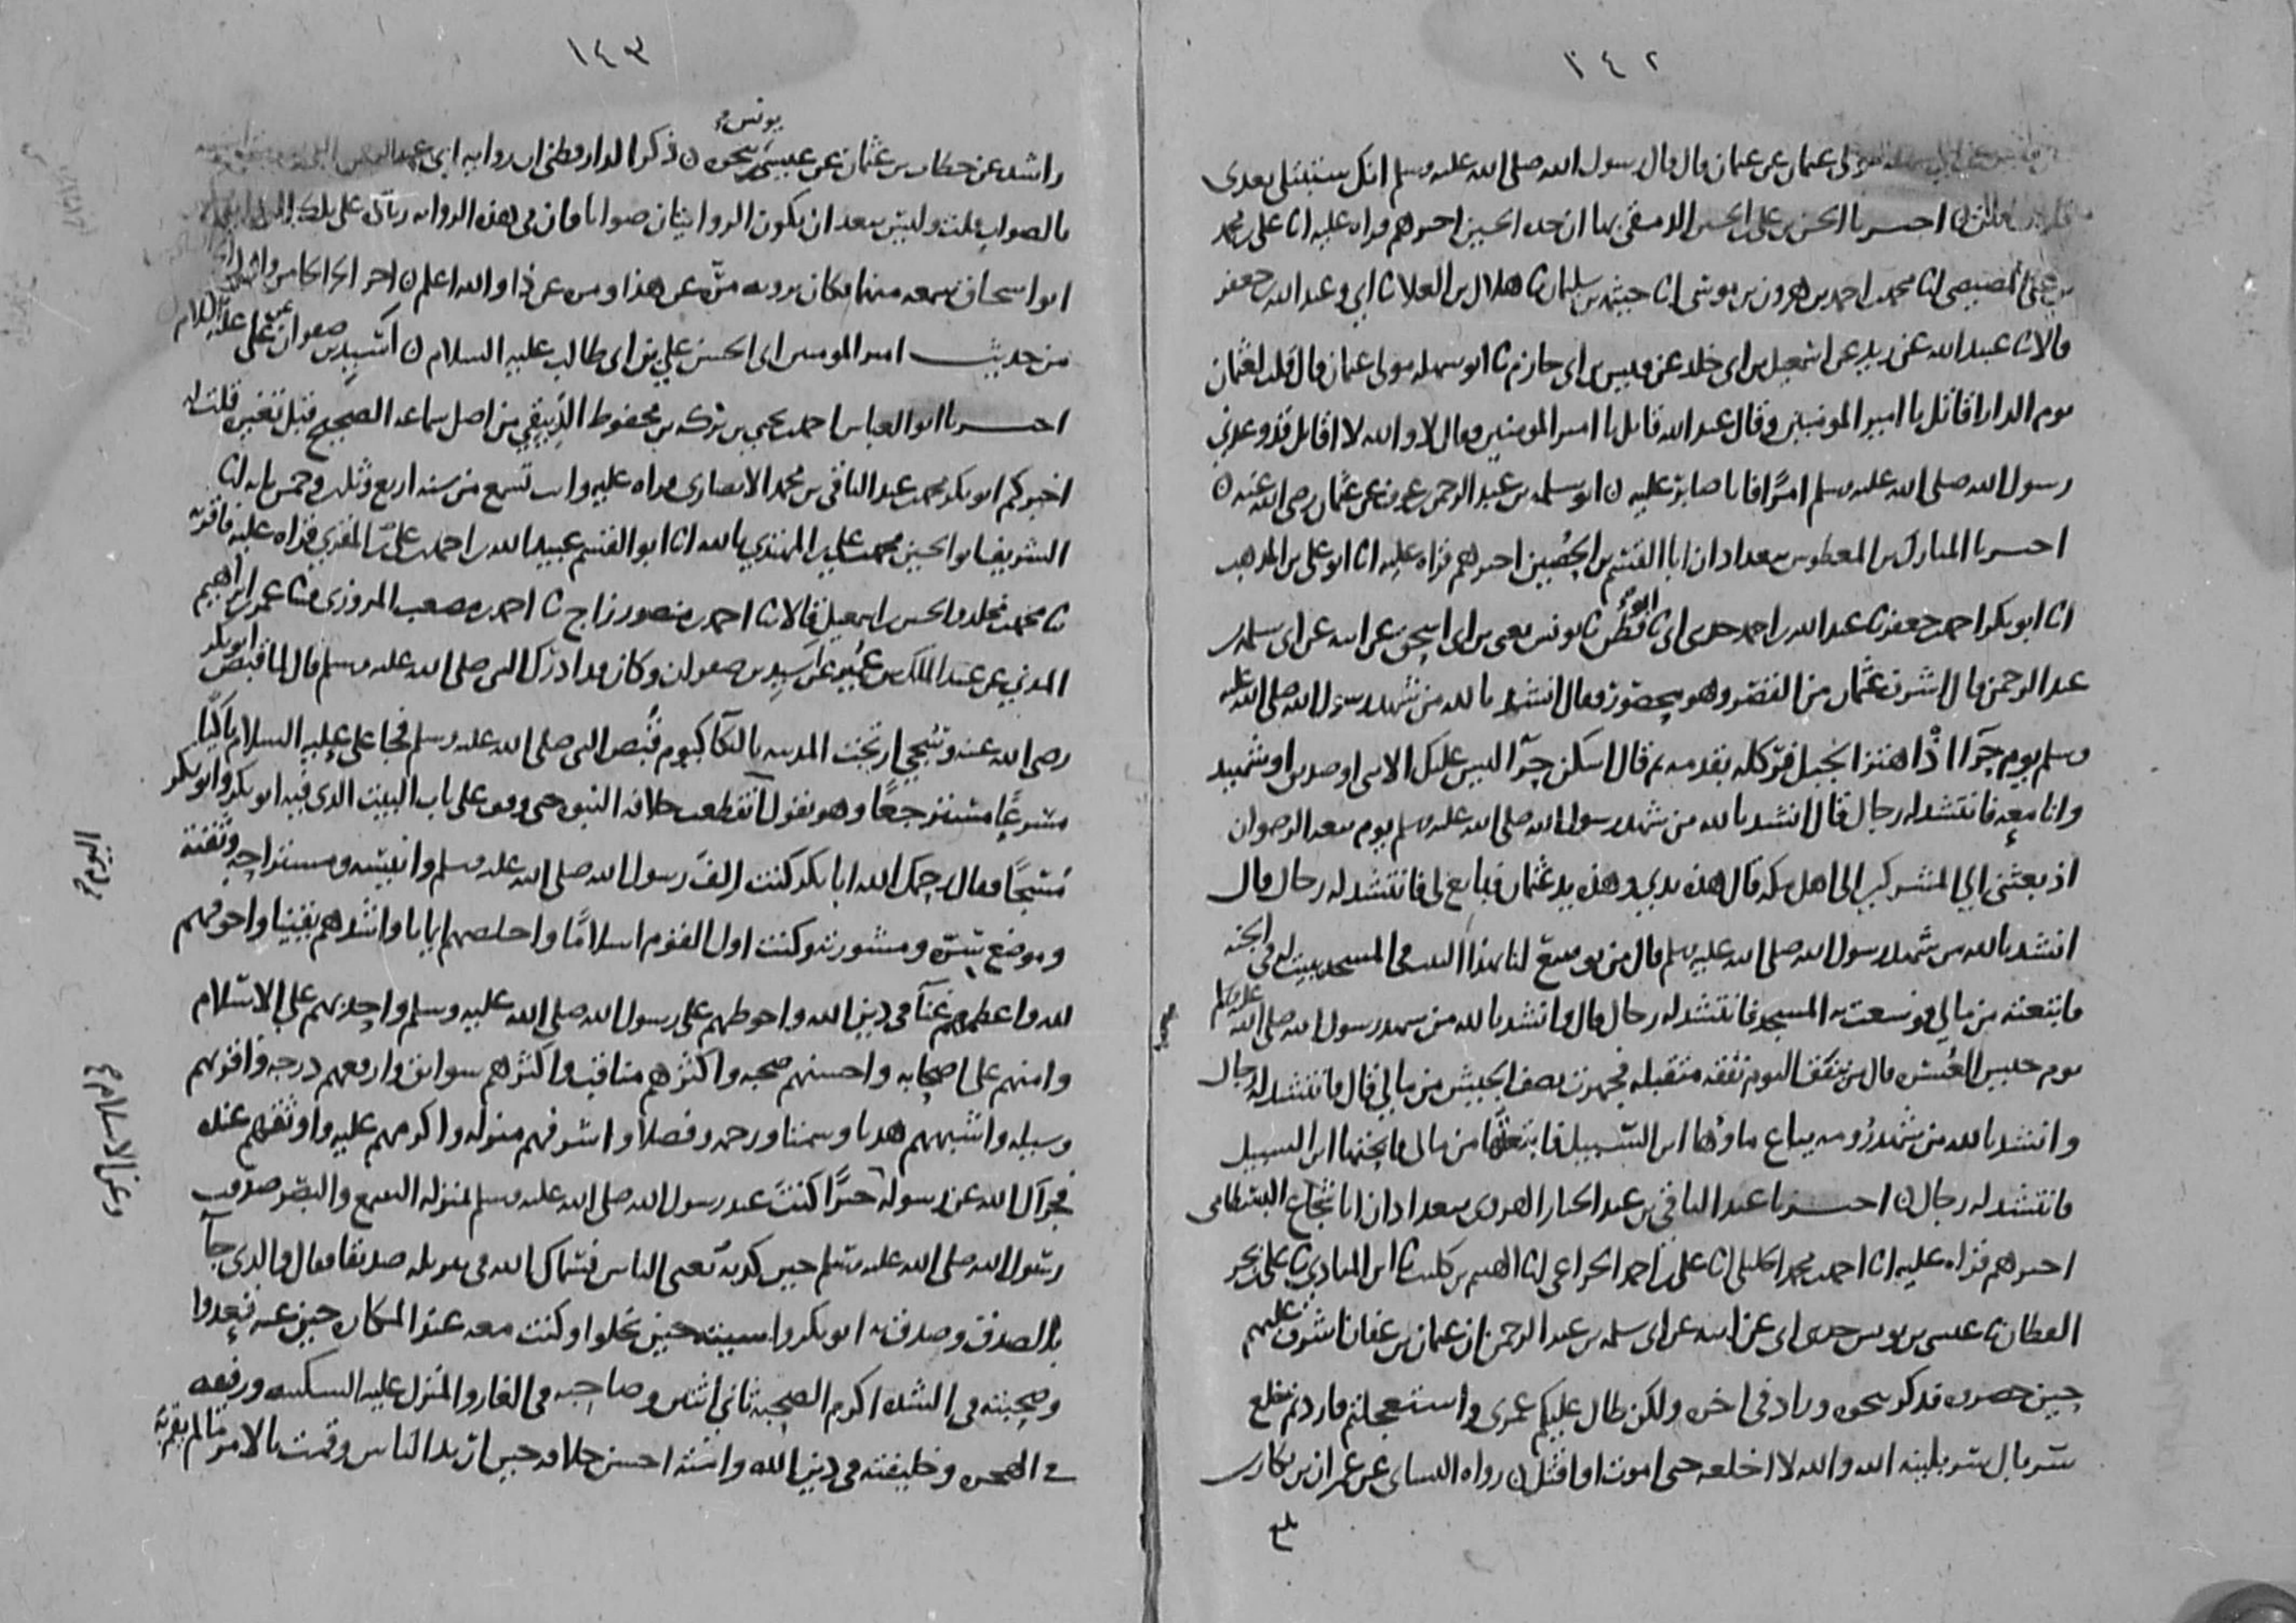 ١٤٢
مولى عثمان عن عثمان قال قال رسول الله صلى الله عليه وسلم انك ستبتلى بعدى
فلا تقاتلن ن اخبرنا الحسن بن على بن الحسن الدمشقى بها ان جده الحسين اخبرهم قراه عليه انا على بن محمد
المصيصى انا محمد بن احمد بن هرون بن موسى انا خيثمه بن سليمان نا هلال بن العلا نا ابي وعبد الله بن جعفر
قالا نا عبيد الله عن زيد عن اسمعيل بن ابى خلد عن قيس بن ابى حازم نا ابو سهله مولى عثمان قال قلت لعثمان
يوم الدار قاتل يا امير المومنين وقال عبد الله قاتل يا امير المومنين فقال لا والله لا اقاتل قد وعدني
رسول الله صلى الله عليه وسلم امرًا فانا صابر عليه ن ابو سلمه بن عبد الرحمن بن عوف عن عثمان رضى الله عنه ن
اخبرنا المبارك بن المعطوش ببغداد ان ابا القسم بن الحصين اخبرهم قراه عليه انا ابو على بن المذهب
انا ابو بكر احمد بن جعفر نا عبد الله بن احمد حدثنى ابى نا ابو قطن نا يونس يعنى بن ابى اسحق عن ابيه عن ابى سلمه بن
عبد الرحمن قال اشرف عثمان من القصر وهو محصور فقال انشد بالله من شهد رسول الله صلى الله عليه
وسلم يوم حرآ اذ اهتز الجبل فركله بقدمه ثم قال اسكن حرآ ليس عليك الا نبى او صديق او شهيد
وانا معه فانتشد له رجال قال انشد بالله من شهد رسول الله صلى الله عليه وسلم يوم بيعه الرضوان
اذ بعثنى الي المشركين الى اهل مكه قال هذه يدي وهذه يد عثمان فبايع لى فانتشد له رجال قال
انشد بالله من شهد رسول الله صلى الله عليه وسلم قال من يوسع لنا بهذا البيت فى المسجد ببيت له فى الجنه
فابتعته من مالي فوسعت به المسجد فانتشد له رجال قال وانشد بالله من شهد رسول الله صلى الله عليه وسلم
يوم جيش العسره قال من ينفق اليوم نفقه متقبله فجهزت نصف الجيش من مالي قال فانتشد له رجال
وانشد بالله من شهد رومه يباع ماؤها ابن السبيل فابتعتها من مالى فابحتها ابن السبيل
فانتشد له رجال ن اخبرنا عبد الباقي بن عبد الجبار الهروى ببغداد ان ابا شجاع البسطامى
اخبرهم قراه عليه انا احمد بن محمد الخليلى انا على بن احمد الخزاعى انا الهيثم بن كليب نا ابن المنادي نا على بن بحر
القطان نا عيسى بن يونس حدثنى ابى عن ابيه عن ابى سلمه بن عبد الرحمن ان عثمان بن عفان اشرف عليهم
حين حصروه فذكر نحوه وزاد فى اخره ولكن طال عليكم عمرى واستعجلتم فاردتم خلع
سربال سربلنيه الله والله لا اخلعه حتى اموت او اقتل ن رواه النساى عن عمران بن بكار بن
بلغ
١٤٣
راشد عن خطاب بن عثمان عن عيسى بن يونس نحوه ن ذكر الدارقطنى ان روايه ابى عبد الرحمن
بالصواب قلت وليس ببعد ان يكون الروايتان صوابا فان فى هذه الروايه
ابو اسحاق سمعه منهما فكان يرويه مرّه عن هذا ومره عن ذا والله اعلم ن اخر الجزا
من حديث امير المومنين ابى الحسن علي بن ابى طالب عليه السلام ن اسيد بن صفوان عن على عليه السلام
اخبرنا ابو العباس احمد بن يحيى بن بركه بن محفوظ الدبيقي من اصل سماعه الصحيح قبل تغيره قلت له
اخبركم ابو بكر محمد بن عبد الباقى بن محمد الانصارى قراه عليه وانت تسمع من سنه اربع وثلثين وخمس مايه انا
الشريف ابو الحسين محمد بن على بن المهتدي بالله انا ابو القسم عبيد الله بن احمد بن على المقري قراه عليه فاقر به
نا محمد بن مخلد والحسين بن اسمعيل قالا نا احمد بن منصور زاج نا احمد بن مصعب المروزى نا عمر بن ابراهيم
المدني عن عبد الملك بن عمير عن اسيد بن صفوان وكان قد ادرك النبى صلى الله عليه وسلم قال لما قبض ابو بكر
رضى الله عنه وسجي ارتجت المدينه بالبكا كيوم قبض النبى صلى الله عليه وسلم فجا على عليه السلام باكيًا
مسرعًا مسترجعًا وهو يقول انقطعت خلافه النبوه حتى وقف على باب البيت الذى فيه ابو بكر وابو بكر
مسجًا فقال رحمك الله ابا بكر كنت الف رسول الله صلى الله عليه وسلم وانيسه ومستراحه وثقته
وموضع سره ومشورته وكنت اول القوم اسلامًا واخلصهم ايمانا واشدهم يقينا واخوفهم
لله واعظمهم غنآ فى دين الله واحوطهم على رسول الله صلى الله عليه وسلم واحدبهم على الاسلام
وامنهم على اصحابه واحسنهم صحبه واكثرهم مناقب واكثرهم سوابق وارفعهم درجه واقربهم
وسيله واشبههم هديا وسمتا ورحمه وفضلا واشرفهم منزله واكرمهم عليه واوثقهم عنده
فجزاك الله عن رسوله خيرًا كنت عند رسول الله صلى الله عليه وسلم بمنزله السمع والبصر صدقت
رسول الله صلى الله عليه وسلم حين كذبه يعنى الناس فسماك الله فى تنزيله صديقا فقال والذى جآ
بالصدق وصدق به ابو بكر واسيته حين بخلوا وكنت معه عند المكاره حين عنه قعدوا
وصحبته فى الشده اكرم الصحبه ثانى اثنين وصاحبه فى الغار والمنزل عليه السكينه ورفيقه
فى الهجره وخليفته فى دين الله وامته احسن خلافه حين ارتد الناس وقمت بالامر ما لم يقم به
وعن الاسلام